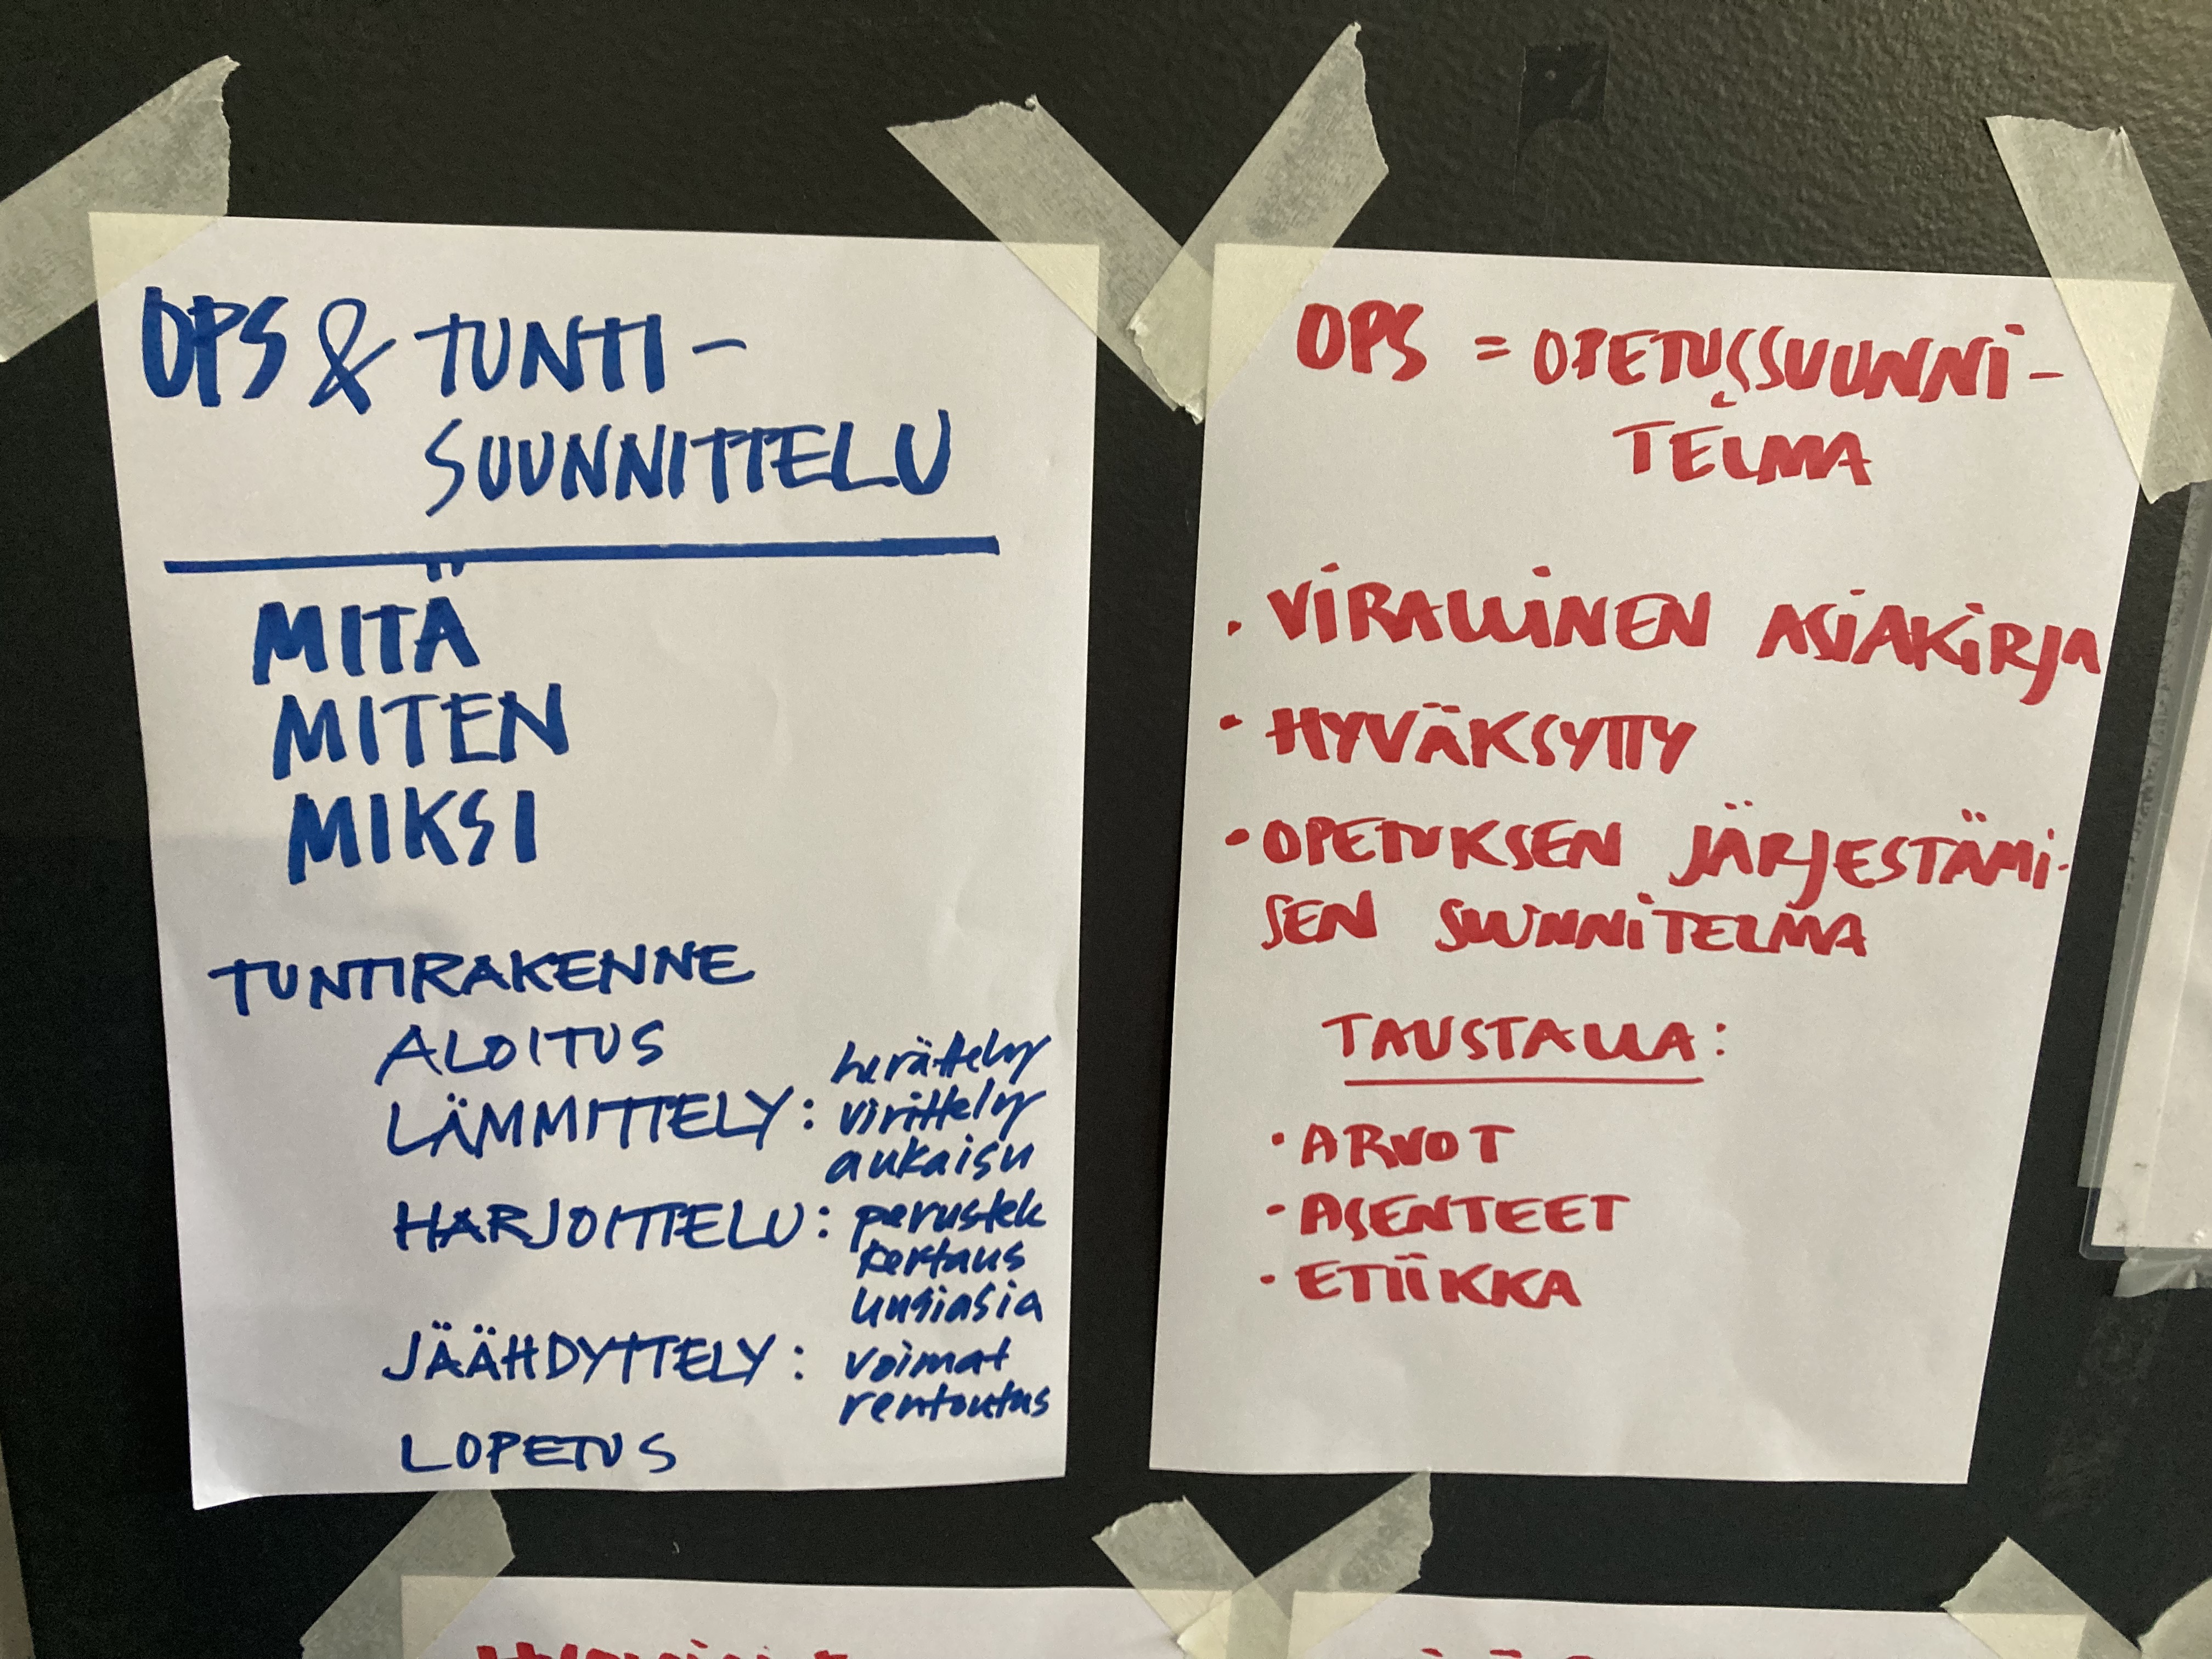 OPS & TUNTI-
SUUNNITTELU
MITÄ
MITEN
MIKSI
TUNTIRAKENNE
ALOITUS
herättely
LÄMMITTELY: virittely
aukaisu
HARJOITTELU: perustek
kertaus
uusiasia
JÄÄHDYTTELY: voimat
rentoutus
LOPETUS
OPS = OPETUSSUUNNI-
TELMA
• VIRALLINEN ASIAKIRJA
• HYVÄKSYTTY
• OPETUKSEN JÄRJESTÄMI-
SEN SUUNNITELMA
TAUSTALLA:
• ARVOT
• ASENTEET
• ETIIKKA